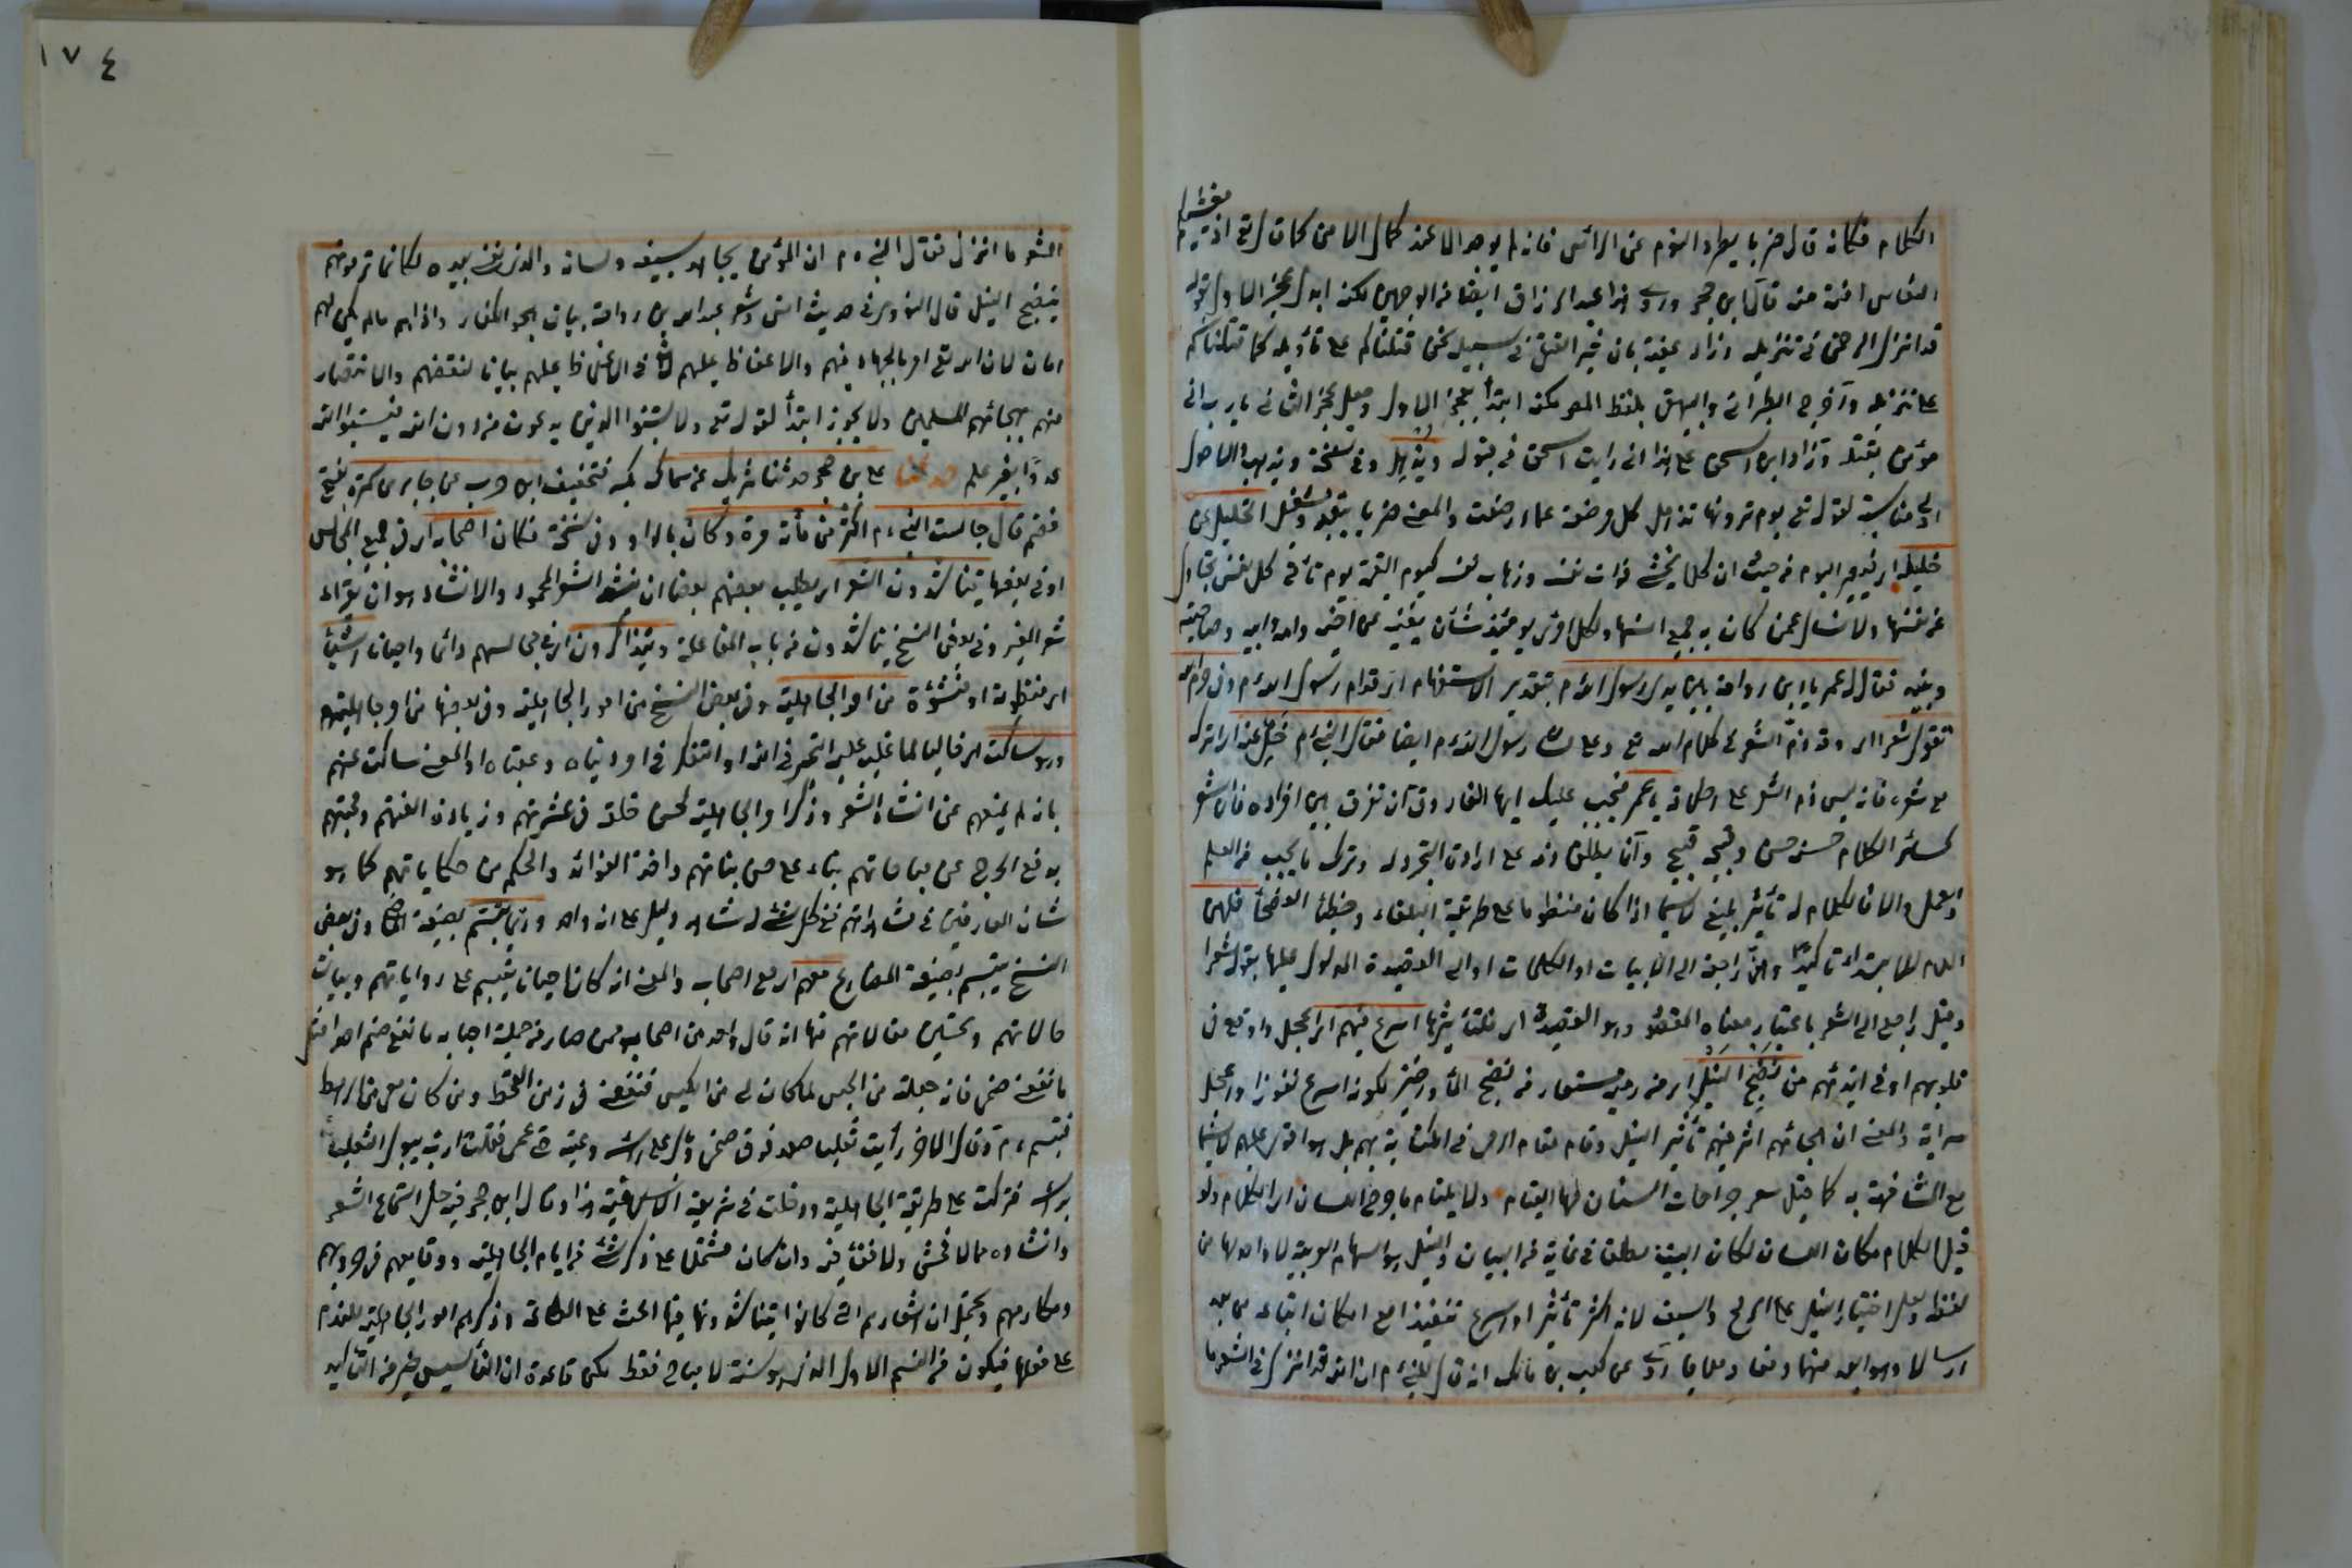 الكلام فكانه قال ضربا يطرد النوم عن الرأس فانه لم يوجد الا عند كمال الامن كما قال تع اذ يغشيكم
النعاس امنة منه قال ابن حجر ورواه عبد الرزاق ايضا من الوجهين لكنه ابدل عجز الاول بقوله
قد انزل الرحمن في تنزيله وزاد عقبه بان خير القتل في سبيله نحن قتلناكم على تأويله كما قتلناكم
على تنزيله وأخرج الطبراني والبيهقي بلفظ المص لكنه ابتدأ بعجز الاول وجعل عجز الثاني يا رب اني
مؤمن بقيله وزاد ابن اسحق على هذا اني رايت الحق في قبوله ويذهل وفي نسخة ويذهب والاول
مناسبة لقوله تع يوم ترونها تذهل كل مرضعة عما ارضعت والمعنى ضربا يبعد ويشغل الخليل عن
خليله اي يصير اليوم من حيث ان كلا يخشى فوات نفسه وذهاب نفسه كيوم القيمة يوم تأتي كل نفس تجادل
عن نفسها ولا يسأل عمن كان به جميع انسها ولكل امرئ يومئذ شأن يغنيه عن اخيه وامه وابيه وصاحبته
وبنيه فقال له عمر يا ابن رواحة بين يدي رسول الله م بتقدير الاستفهام اي قدام رسول الله م وفي حرم الله
تقول شعرا اي وقد ذم الشعر في كلام الله تع وعلى لسان رسول الله م ايضا فقال النبي م خل عنه اي اتركه
مع شعره فانه ليس ذم الشعر على اطلاقه يا عمر فيجب عليك ايها الفاروق ان تفرق بين افراده فان الشعر
كسائر الكلام حسنه حسن وقبيحه قبيح وانما يطلق ذمه على ارادة التجرد له وترك ما يجب من العلم
والعمل والا فالكلام له تأثير بليغ لا سيما اذا كان منظوما على طريقة البلغاء وخطبا الفصحاء فلهي
اللام للابتداء تأكيدا وهي راجعة الى الابيات او الكلمات او الى القصيدة المدلول عليها بقوله شعرا
وقيل راجع الى الشعر باعتبار معناه المقصود وهو القصيدة اي فلتأثيرها اسرع فيهم اي اعجل واوقع في
قلوبهم او في ايذائهم من نضح النبل اي من رميه مستعار من نضح الماء واختير لكونه اسرع نفوذا واعجل
سراية والمعنى ان هجائهم اثر فيهم تأثير النبل وقام مقام الرمي في النكاية بهم بل هو اقوى عليهم لا سيما
مع المشافهة به كما قيل شعر جراحات السنان لها التيام ولا يلتام ما جرح اللسان اي الكلام ولو
قيل الكلام مكان اللسان لكان ابيت مطلقا في غاية من البيان والنبل هو السهام العربية لا واحد لها من
لفظه ولعل اختيار النبل على الرمح والسيف لانه اكثر تأثيرا واسرع تنفيذا مع امكان ايقاعه من بعد
ارسالا وهو ابعد منهما دفعا وعلاجا روى عن كعب بن مالك انه قال للنبي م ان الله قد انزل في الشعر ما
١٧٤
الشعر ما انزل فقال النبي م ان المؤمن يجاهد بسيفه ولسانه والذي نفسي بيده لكانما ترمونهم
بنضح النبل قال النووي في حديث انس وشعر عبد الله بن رواحة بيان هجو الكفار واذاهم مالم يكن لهم
امان لان الله تع امر بالجهاد فيهم والاغلاظ عليهم لما في الاغلاظ عليهم بيانا لنقضهم والانتصار
منهم بهجائهم المسلمين ولا يجوز ابتدأ لقوله تع ولا تسبوا الذين يدعون من دون الله فيسبوا الله
عدوا بغير علم حدثنا علي بن حجر حدثنا شريك عن سماك بكسر فتخفيف ابن حرب عن جابر بن سمرة بفتح
فضم قال جالست النبي م اكثر من مأة مرة وكان بالواو وفي نسخة فكان اصحابه اي في جميع المجالس
او في بعضها يتناشدون الشعر اي يطلب بعضهم بعضا ان ينشد الشعر المحمود والانشاد هو ان يقرأ
شعر الغير وفي بعض النسخ يناشدون من باب المفاعلة ويتذاكرون اي في مجالسهم دائما واحيانا اشياء
اي منظومة او منثورة من امر الجاهلية وفي بعض النسخ من امور الجاهلية وفي بعضها من امر جاهليتهم
وهو ساكت اي غالبا لما غلب عليه التحير في الله او التفكر في امر دنياه وعقباه او المعنى ساكت عنهم
بانه لم يمنعهم عن انشاد الشعر وذكر امر الجاهلية لحسن خلقه في عشرتهم وزيادة الفتهم ومحبتهم
ودفع الحرج عن مباحاتهم بناء على حسن بنياتهم واخذ الفوائد والحكم من حكاياتهم كما هو
شأن العارفين في مشاهداتهم ففي كل شئ له شاهد دليل على انه واحد وربما تبسم بصيغة الماضي وفي بعض
النسخ يتبسم بصيغة المضارع معهم اي مع اصحابه والمعنى انه كان احيانا يتبسم على رواياتهم وبيان
حالاتهم وتحسين مقالاتهم منها انه قال واحد من اصحابه ممن صار من جملة احبابه ما نفع صنم احدا مثل
ما نفعني صنمي فانه جعلته من الحيس فنفعني في زمن القحط
فتبسم م وقال الاخر رأيت ثعلبا صعد فوق صنمي وبال على رأسه وعينيه حتى عمي فقلت أرب يبول الثعلبان
برأسه فتركت على طريقة الجاهلية ودخلت في شريعة الاسلامية هذا وقال ابن حجر فيه حل استماع الشعر
وانشاده مما لا فحش ولا خنأ فيه وان كان مشتملا على ذكر شئ من ايام الجاهلية ووقايعهم في حروبهم
ومكارمهم ويحتمل ان اشعارهم التي كانوا يتناشدونها فيها الحث على الطاعة وذكرهم امور الجاهلية للندم
على فعلها فيكون من القسم الاول الذي هو سنة لا مباح فقط لكن قاعدة ان التأسيس خير من التأكيد